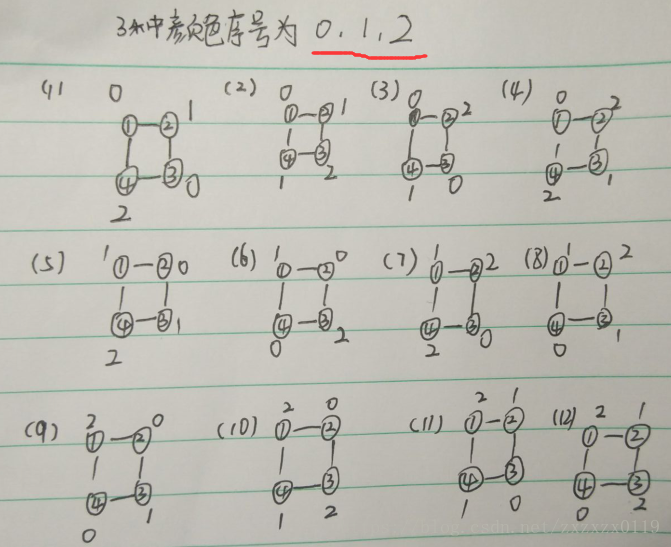 3种颜色序号为 0. 1. 2
(1) 0 (2) 0 (3) 0 (4) 0
① ② 1 ① ② 1 ① ② 2 ① ② 2
④ ③ 0 ④ ③ ④ ③ ④ ③
2 1 2 1 0 2 1
(5) 1 ① ② 0 (6) 1 ① ② 0 (7) 1 ① ② 2 (8) 1 ① ② 2
④ ③ 1 ④ ③ ④ ③ ④ ③
2 0 2 2 0 0 1
(9) 2 0 (10) 2 0 (11) 2 1 (12) 2 1
① ② ① ② ① ② ① ②
④ ③ ④ ③ ④ ③ ④ ③
0 1 1 2 1 0 0 2
blog.csdn.net/zxzxzx0119